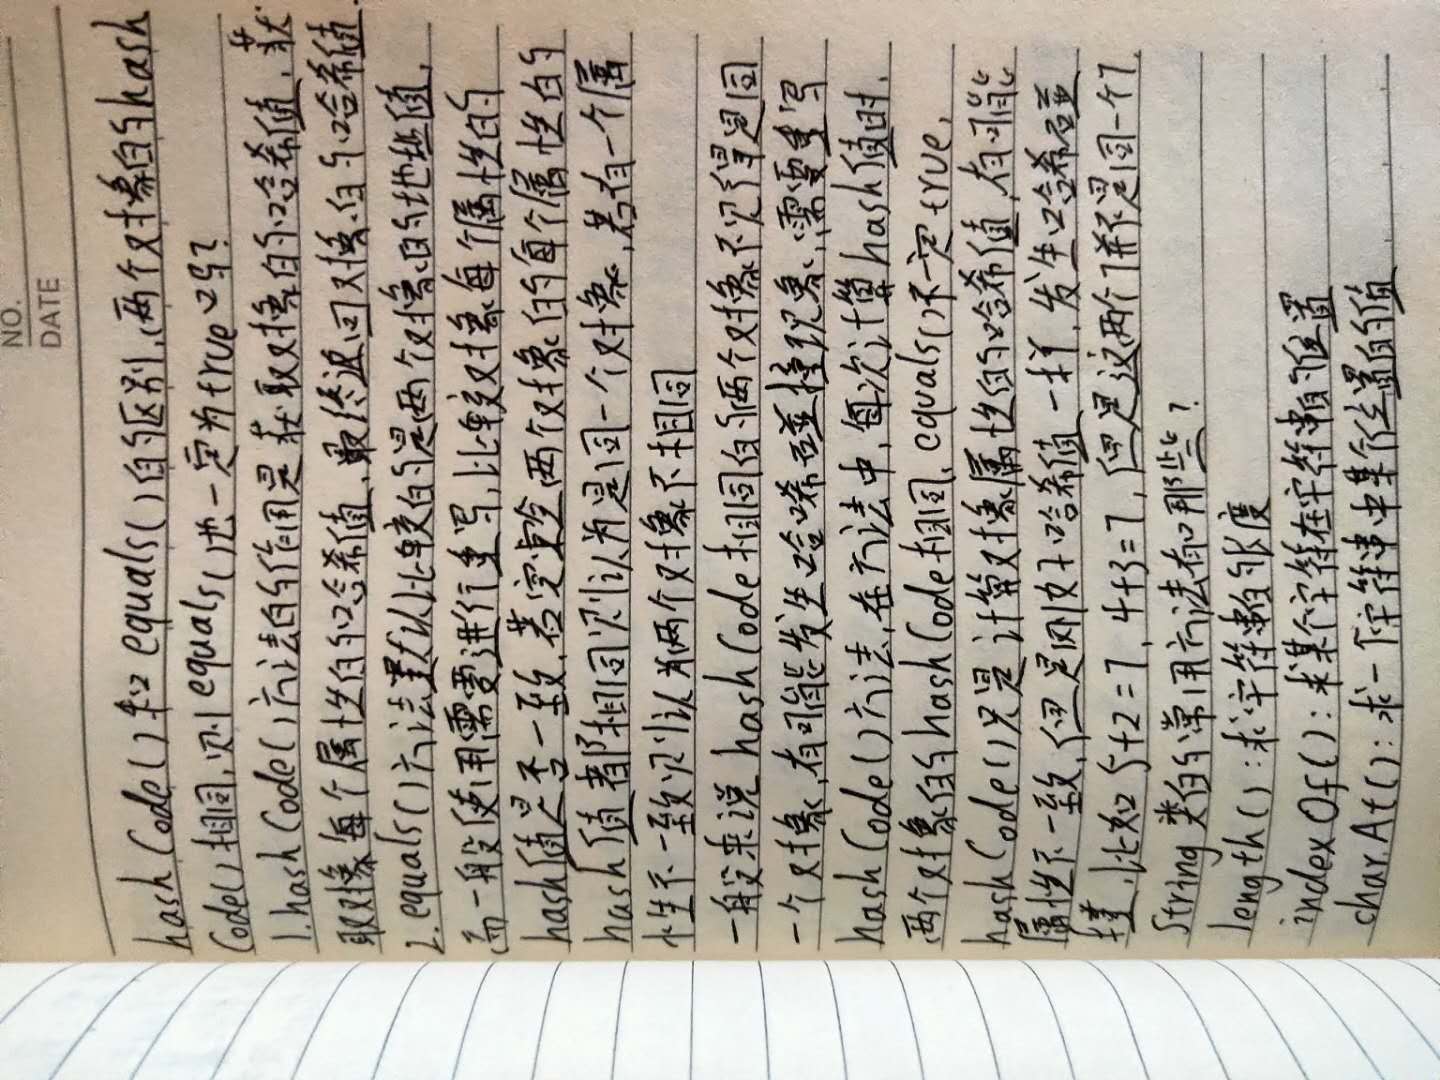 NO.
DATE
hashCode()和equals()的区别,两个对象的hash
Code()相同,则equals()也一定为true吗?
1.hashCode()方法的作用是获取对象的哈希值,获
取对象每个属性的哈希值,最终返回对象的哈希值.
2.equals()方法默认比较的是两个对象的地址值,
而一般使用需要进行重写,比较对象每个属性的
hash值是否一致,若两个对象的每个属性的
hash值都相同则认为是同一个对象,若有一个属
性不一致则认为两个对象不相同
一般来说hashCode相同的两个对象不见得是同
一个对象,有可能发生哈希碰撞现象,需要重写
hashCode()方法,在方法中,每次计算hash值时,
两个对象的hashCode相同,equals()不一定true,
hashCode()只是计算对象属性的哈希值,有可能
属性不一致,但是刚好哈希值一样,发生哈希碰
撞,比如5+2=7,4+3=7,但是这两个7并不是同一个7.
String类的常用方法有哪些?
length():求字符串的长度
indexOf():求某个字符在字符串的位置
charAt():求一个字符串中某个位置的值